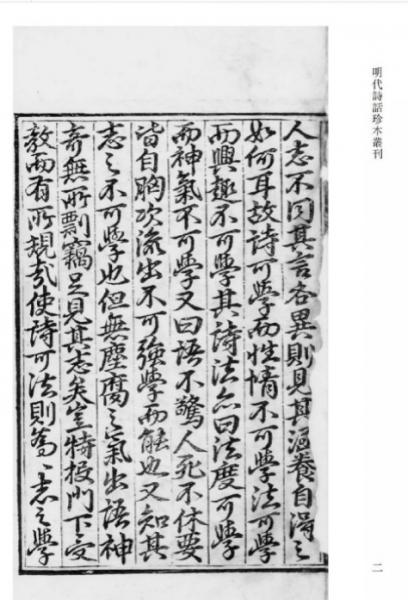 明代詩話珍本叢刊
人志不同其言各異則見其涵養自得之
如何耳故詩可學而性情不可學法可學
而興趣不可學其詩法亦曰法度可學
而神氣不可學又曰語不驚人死不休要
皆自胸次流出不可強學而能也又知其
志之不可學也但無塵腐之氣出語神
奇無所剽竊足見其志矣豈特門下受
教而有所規哉使詩可法則志之學
二